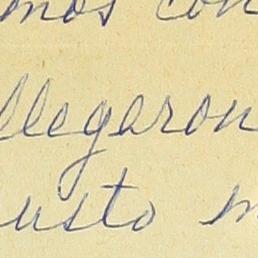 mos con
llegaron
usto m